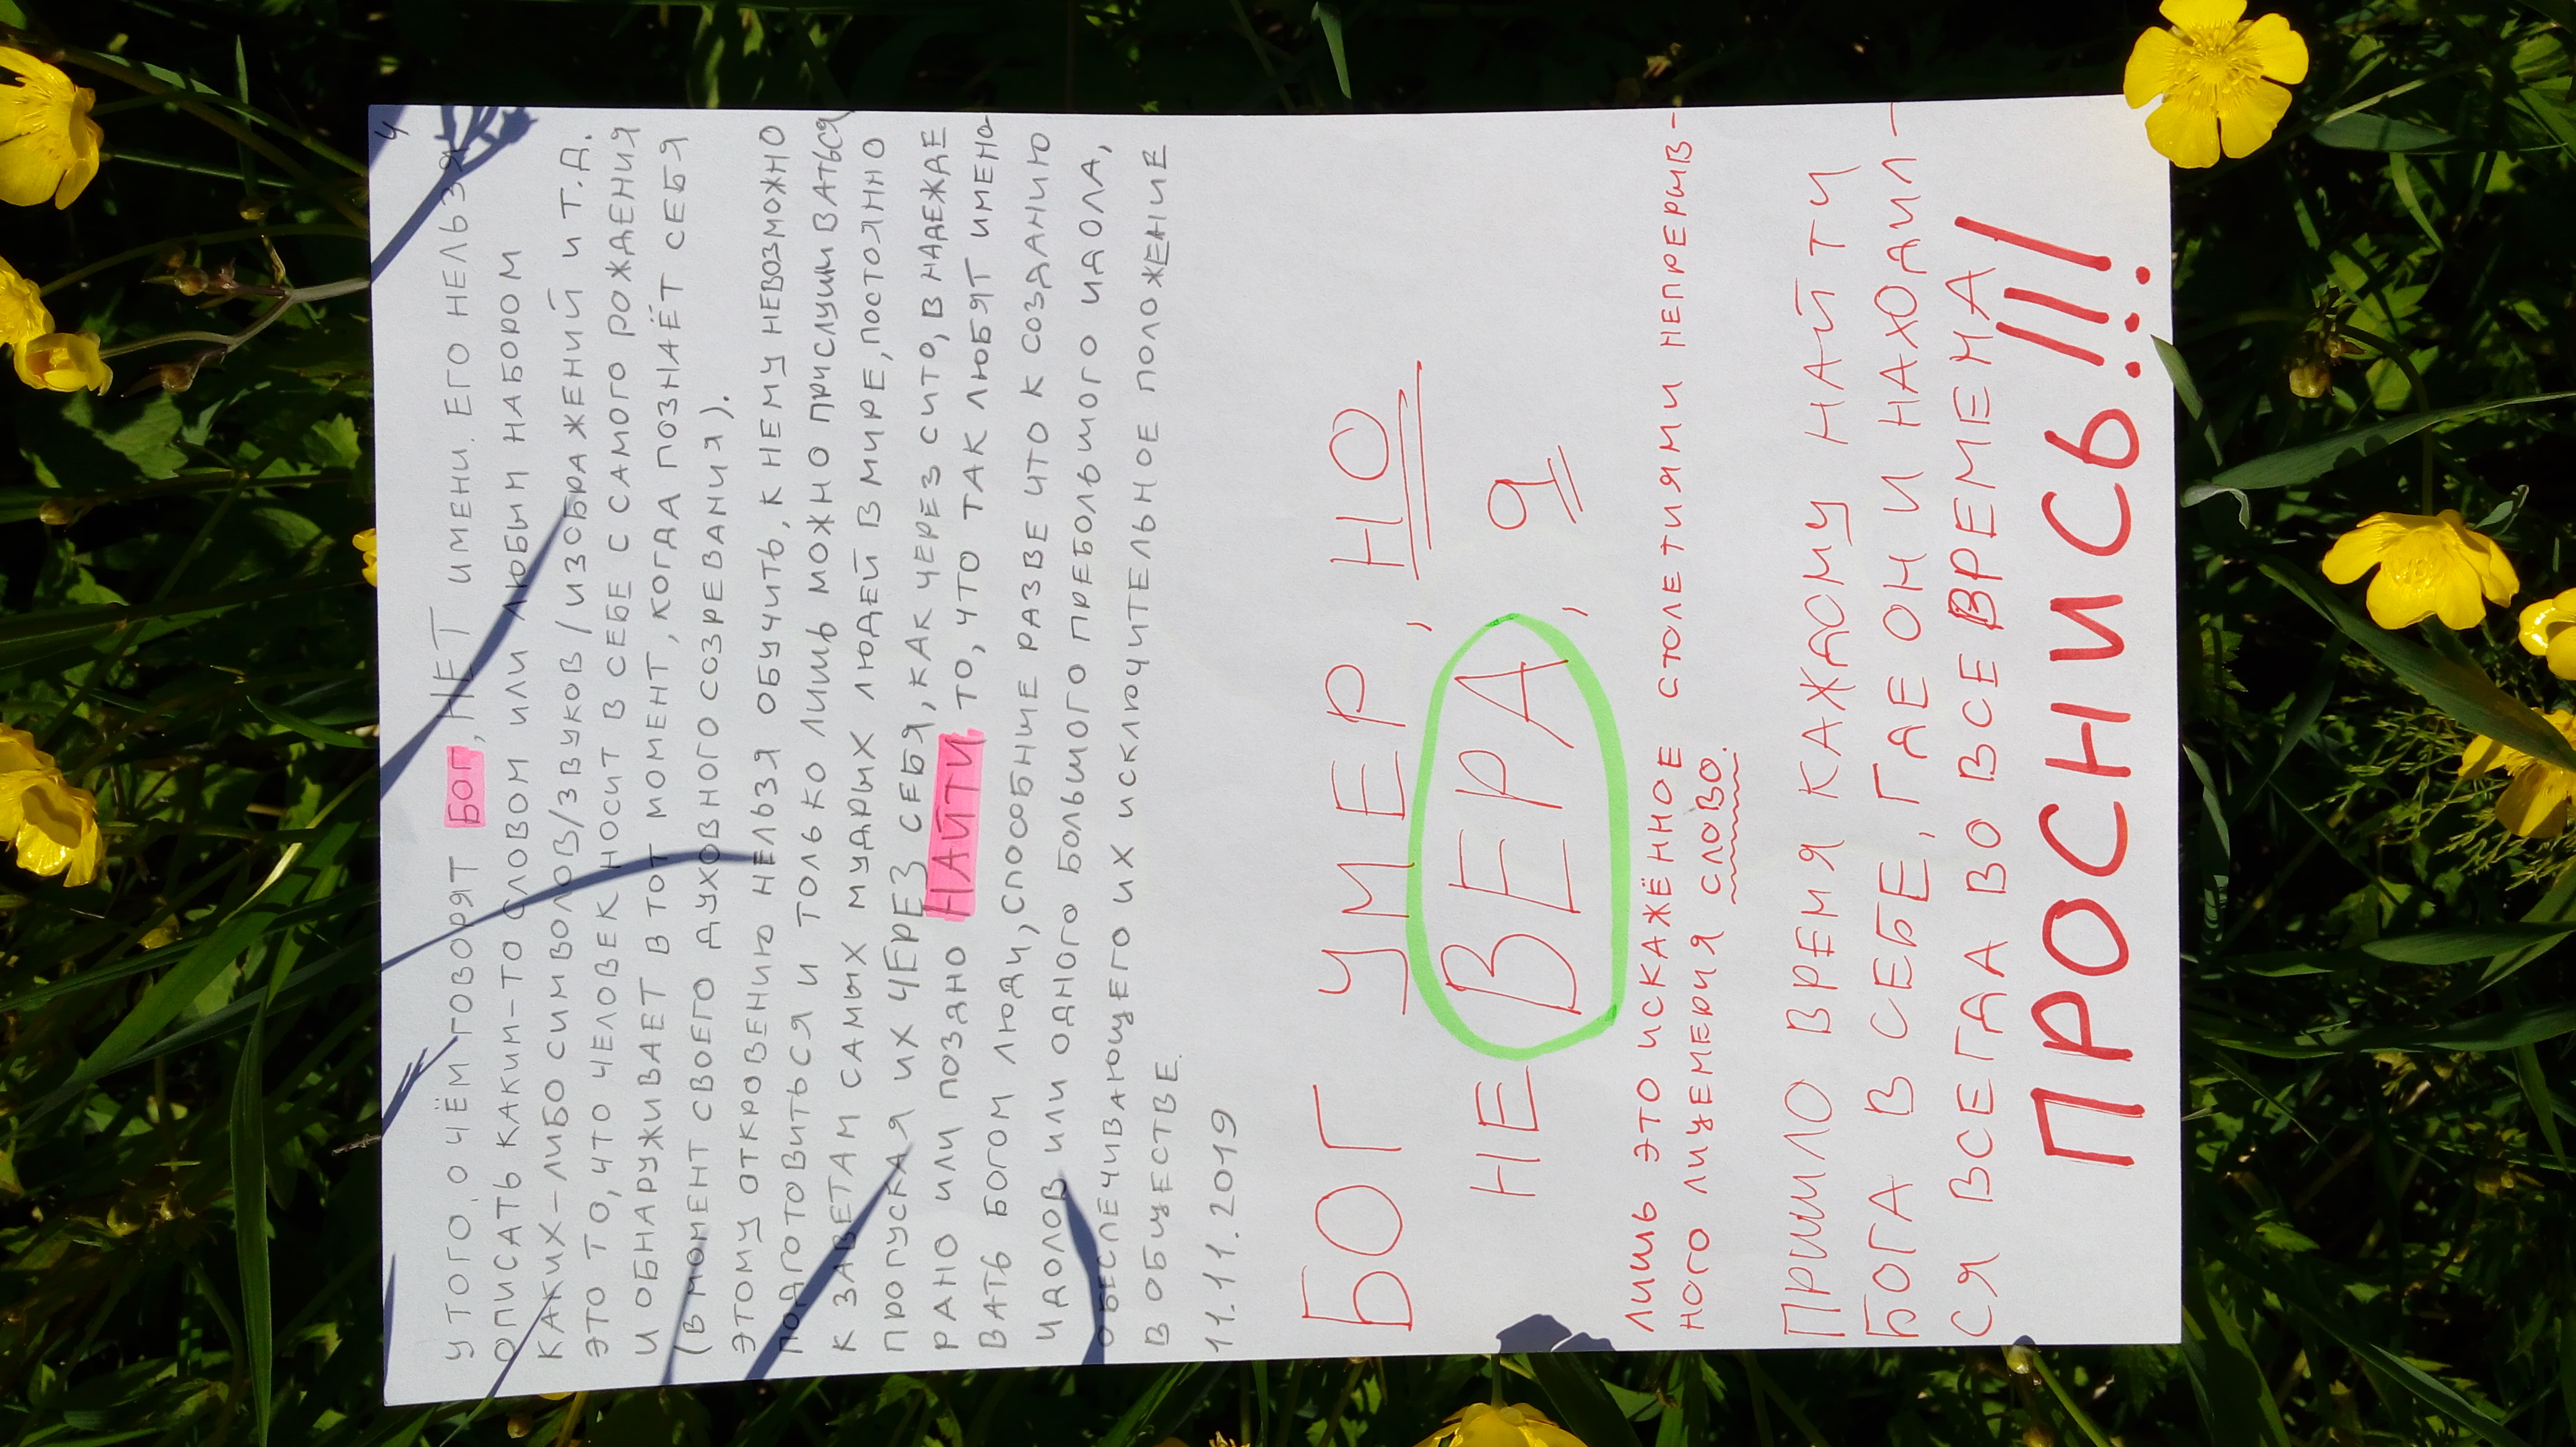 4
У ТОГО, О ЧЁМ ГОВОРЯТ БОГ, НЕТ ИМЕНИ. ЕГО НЕЛЬЗЯ
ОПИСАТЬ КАКИМ-ТО СЛОВОМ ИЛИ ЛЮБЫМ НАБОРОМ
КАКИХ-ЛИБО СИМВОЛОВ/ЗВУКОВ/ИЗОБРАЖЕНИЙ И Т.Д.
ЭТО ТО, ЧТО ЧЕЛОВЕК НОСИТ В СЕБЕ С САМОГО РОЖДЕНИЯ
И ОБНАРУЖИВАЕТ В ТОТ МОМЕНТ, КОГДА ПОЗНАЁТ СЕБЯ
(В МОМЕНТ СВОЕГО ДУХОВНОГО СОЗРЕВАНИЯ).
ЭТОМУ ОТКРОВЕНИЮ НЕЛЬЗЯ ОБУЧИТЬ, К НЕМУ НЕВОЗМОЖНО
ПОДГОТОВИТЬСЯ И ТОЛЬКО ЛИШЬ МОЖНО ПРИСЛУШИВАТЬСЯ
К ЗАВЕТАМ САМЫХ МУДРЫХ ЛЮДЕЙ В МИРЕ, ПОСТОЯННО
ПРОПУСКАЯ ИХ ЧЕРЕЗ СЕБЯ, КАК ЧЕРЕЗ СИТО, В НАДЕЖДЕ
РАНО ИЛИ ПОЗДНО НАЙТИ ТО, ЧТО ТАК ЛЮБЯТ ИМЕНО
ВАТЬ БОГОМ ЛЮДИ, СПОСОБНЫЕ РАЗВЕ ЧТО К СОЗДАНИЮ
ИДОЛОВ ИЛИ ОДНОГО БОЛЬШОГО ПРЕБОЛЬШОГО ИДОЛА,
ОБЕСПЕЧИВАЮЩЕГО ИХ ИСКЛЮЧИТЕЛЬНОЕ ПОЛОЖЕНИЕ
В ОБЩЕСТВЕ.
11.11.2019
БОГ УМЕР, НО
НЕ ВЕРА, А
ЛИШЬ ЭТО ИСКАЖЁННОЕ СТОЛЕТИЯМИ НЕПРЕРЫВ-
НОГО ЛИЦЕМЕРИЯ СЛОВО.
ПРИШЛО ВРЕМЯ КАЖДОМУ НАЙТИ
БОГА В СЕБЕ, ГДЕ ОН И НАХОДИЛ-
СЯ ВСЕГДА ВО ВСЕ ВРЕМЕНА
ПРОСНИСЬ!!!